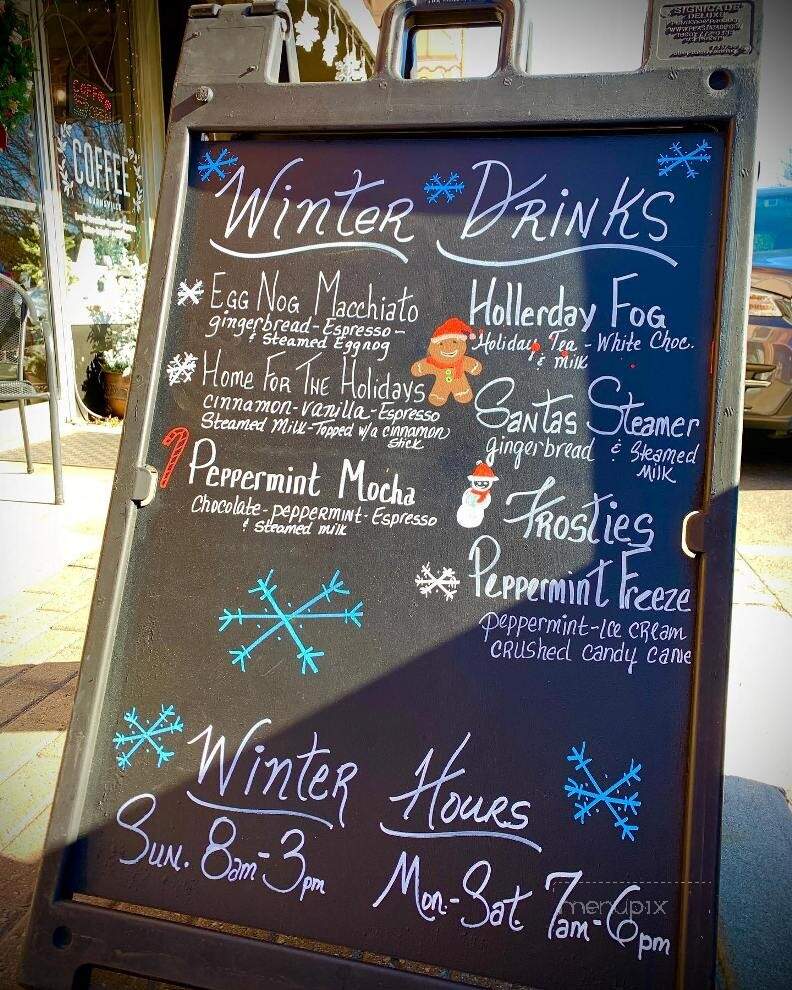 SIGNICADE
DELUXE
COFFEE
COFFEE
Winter Drinks
Egg Nog Macchiato
gingerbread - Espresso -
& Steamed Eggnog
Home For The Holidays
cinnamon - vanilla - Espresso
Steamed Milk - Topped w/a cinnamon
stick
Peppermint Mocha
Chocolate - peppermint - Espresso
& steamed milk
Hollerday Fog
Holiday Tea - White Choc.
& milk
Santas Steamer
gingerbread & Steamed
Milk
Frosties
Peppermint Freeze
peppermint - Ice cream
crushed candy cane
Winter Hours
Sun. 8am - 3pm
Mon. - Sat. 7am - 6pm
menupix